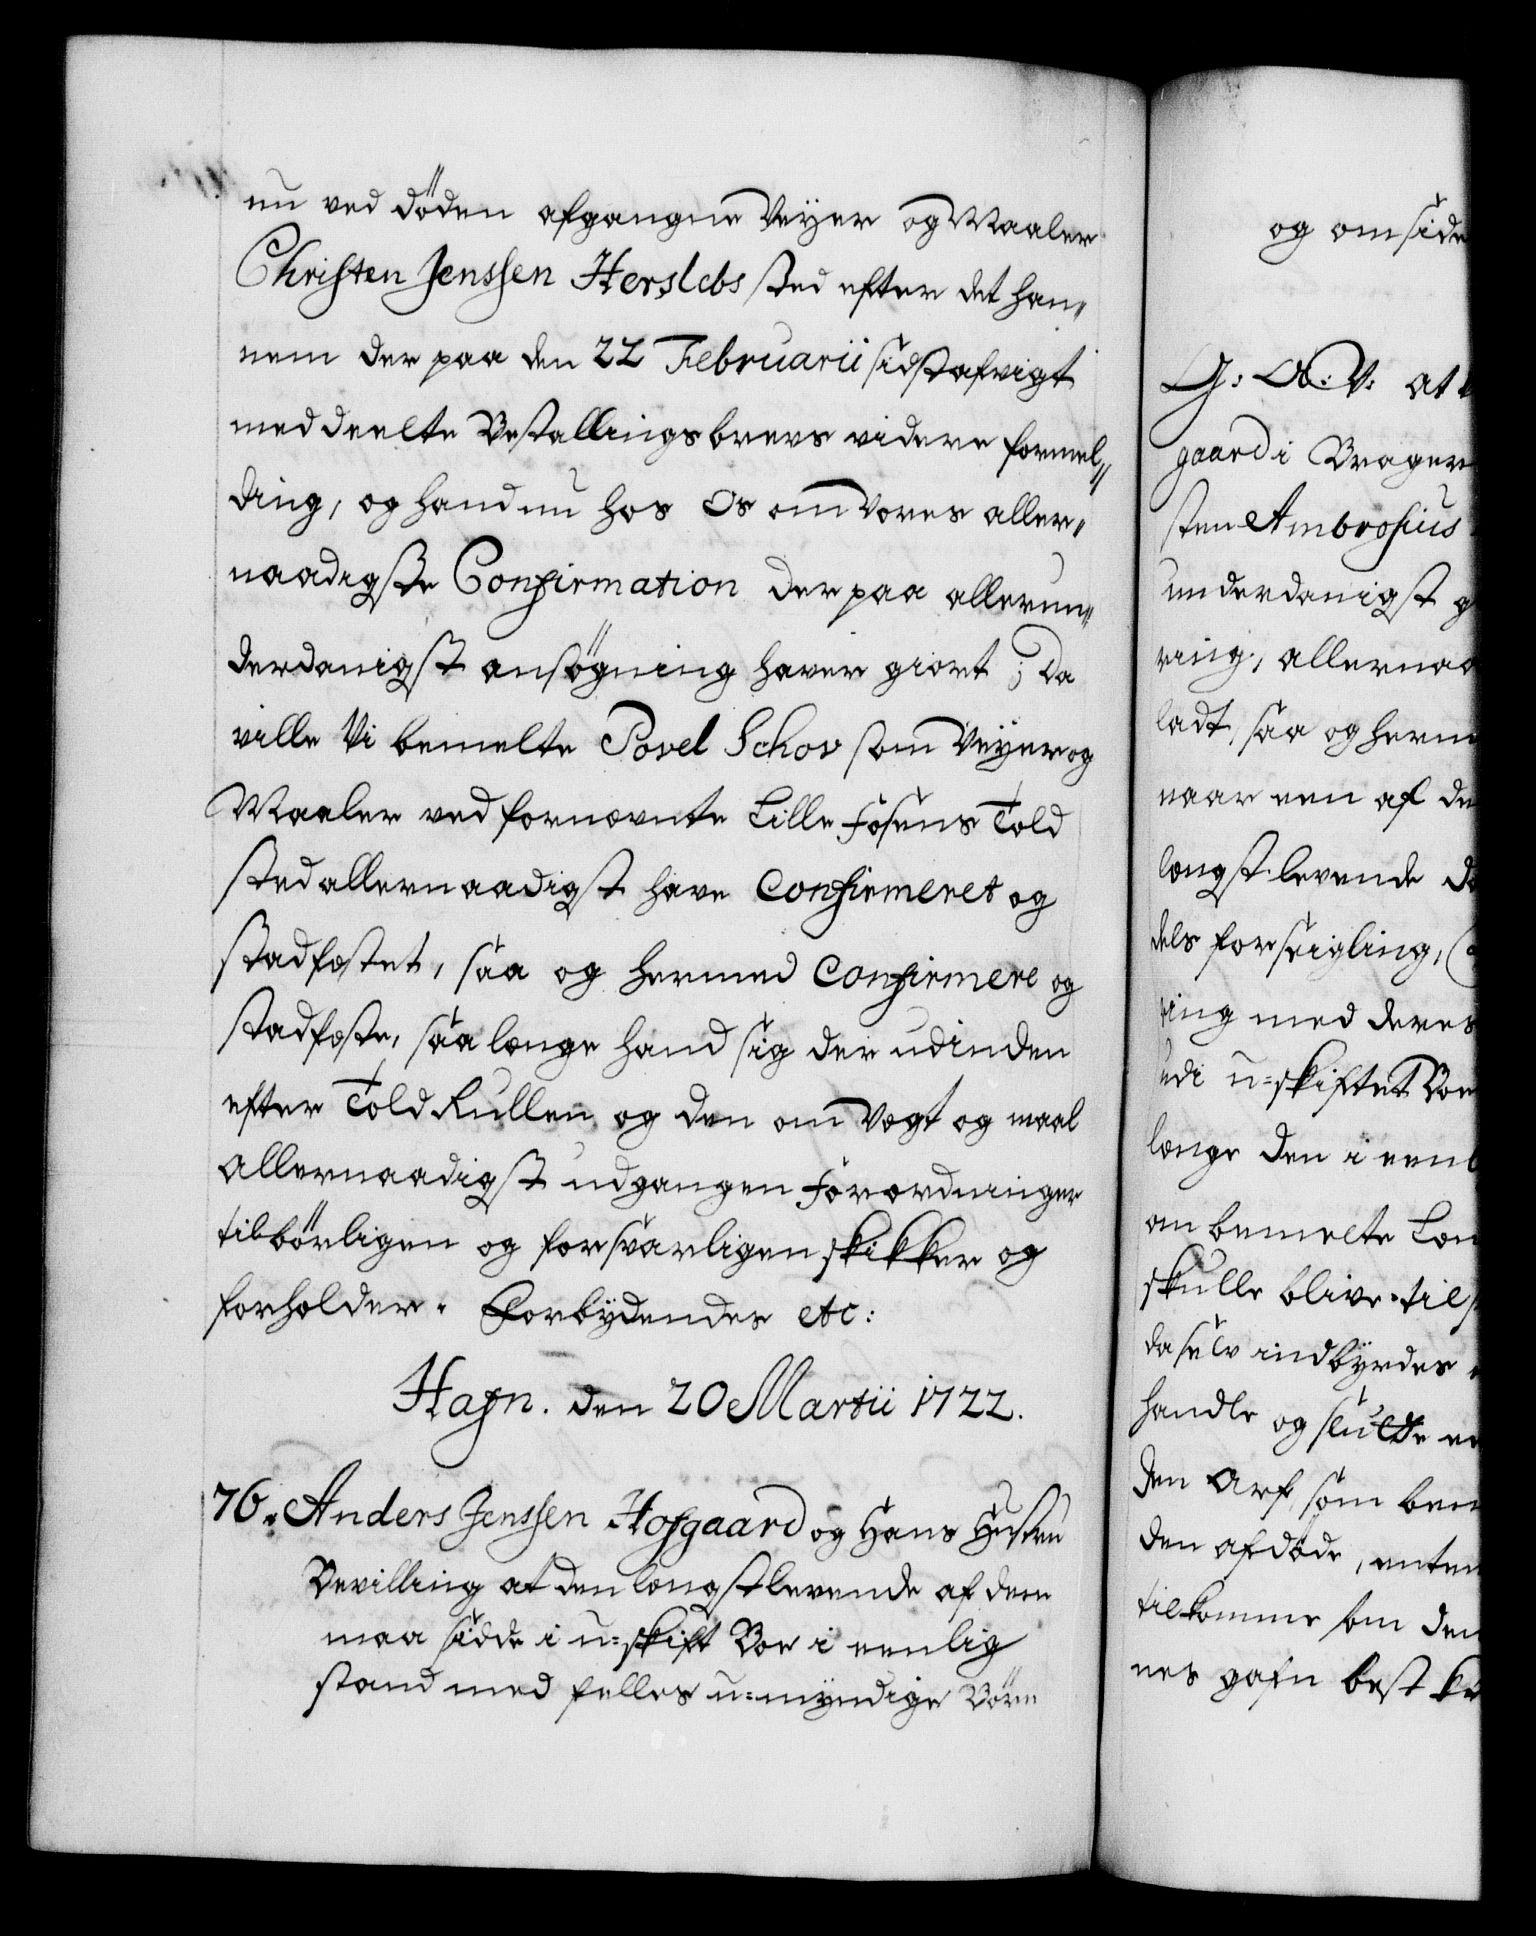 nu ved døden afgangne Veyer og Maaler
Christen Jenssen Herslebs sted efter det han„
nem der paa den 22 Februarii sidst afvigt
meddeelte Bestallingsbrevs videre formel„
ding, og hand nu hos Os om Vores aller„
naadigste Confirmation der paa allerun„
derdanigst ansøgning haver giort; Da
ville Vi bemelte Povel Schov som Veyer og
Maaler ved fornævnte Lille Fosens Told
sted allernaadigst have Confirmeret og
stadfæstet, saa og hermed Confirmere og
stadfæste, saa længe hand sig der udinden
efter Told Rullen og den om Vægt og maal
allernaadigst udgangen Forordninger
tilbørligen og forsvarligen skikker og
forholder. Forbydendes etc:
Hafn. den 20 Martii 1722.
76. Anders Jenssen Hofgaard og Hans Hustru
Bevilling at den længstlevende af dem
maa sidde i u=skift Boe i eenlig
stand med felles u=myndige Børn
og omside
G: A: V: At
gaard i Brager
sten Ambrosius
underdanigst
ring, allernaa
ladt, saa og herm
naar een af de
længst levende
dels forseigling,
ring med deres
udi u=skiftet Boe
længe den i eenl
om bemelte
skulle blive til
da selv indbyrdes
handle og slutte
den Arf som bem
den afdøde, enten
tilkomme som den
nes gafn best